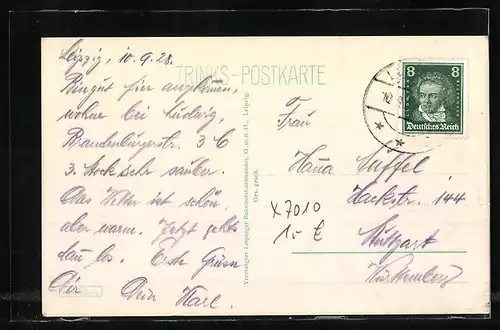 Leipzig, 10.9.28.
TRINKS-POSTKARTE
gut hier angekommen,
wohne bei Ludwig,
Brandenburgerstr. 3 C
3. Stock sehr sauber.
Das Wetter ist schön,
aber warm. Jetzt gehts
los. Erste Grüsse
Dir Dein Karl.
Vereinigte Leipziger G.m.b.H., Leipzig.
Ges. gesch.
8 8
Deutsches Reich
Frau
Hackstr. 144
Stuttgart
Württemberg
X7010